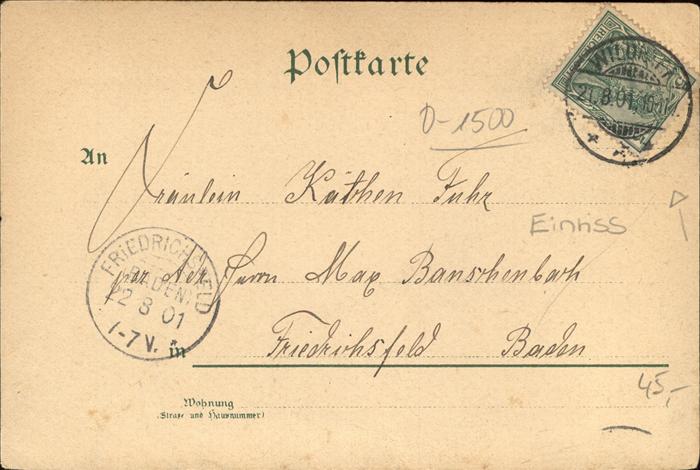 Postkarte
WILDB
21.8.01, 10-11
D-1500
An
Fräulein Käthen Fuhr
Einriss
per Adr. Herrn Max Banschenbach
FRIEDRICHSFELD
(BADEN)
22 8 01
1-7 V.
in Friedrichsfeld Baden
45,-
Wohnung
(Straße und Hausnummer)